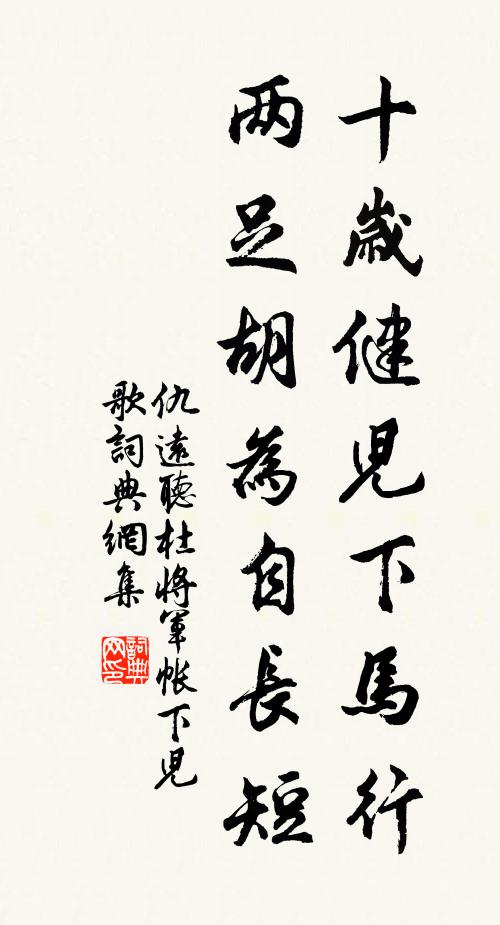 十歲健児下馬行
两足胡為自長短
仇遠聽杜將軍帳下児
歌詞典網集
詞典
网印